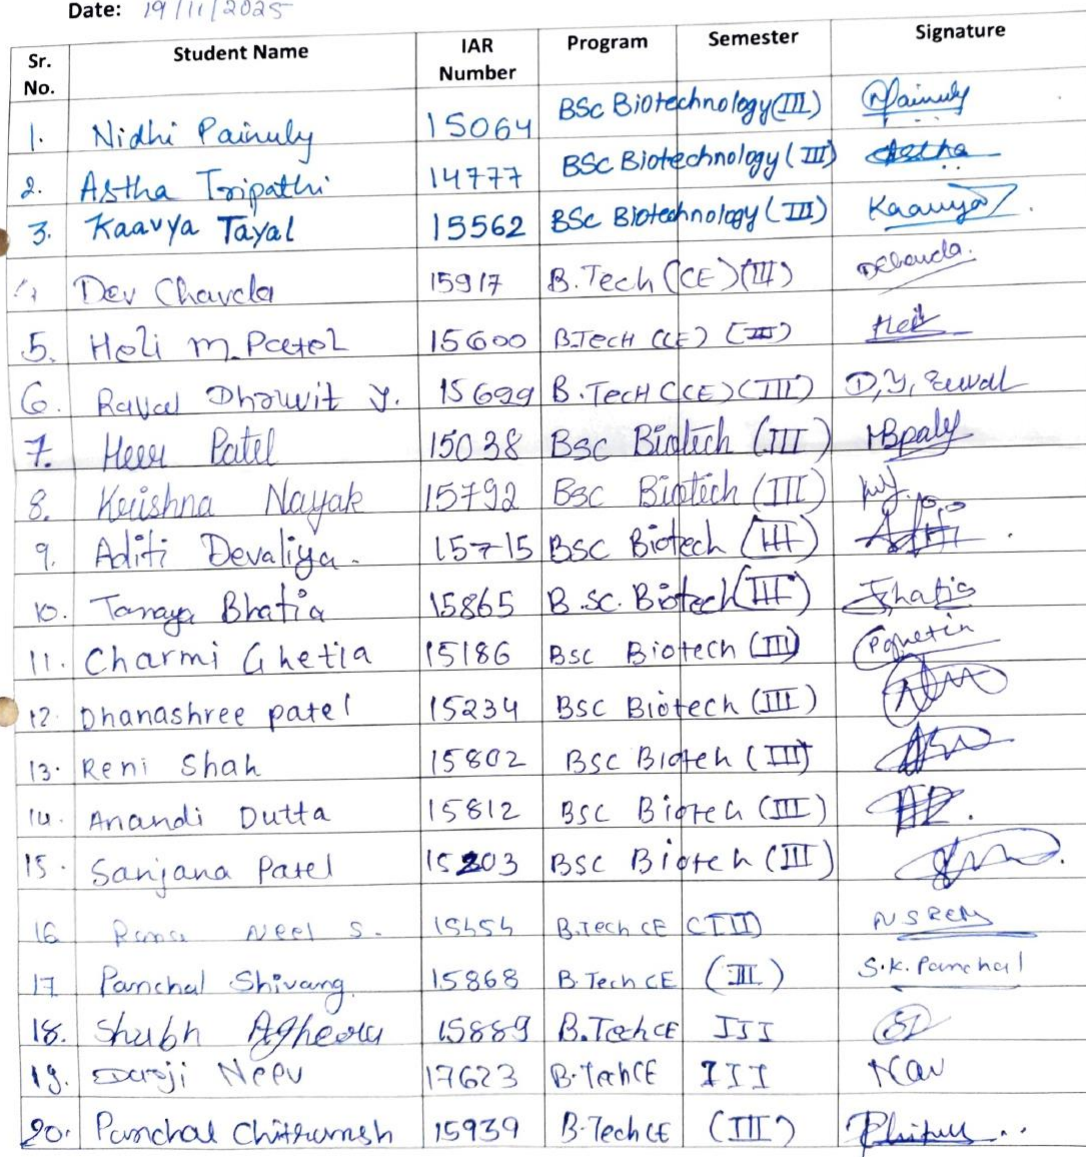 Date: 19/11/2025
Sr. No. Student Name IAR Number Program Semester Signature
1. Nidhi Painuly 15064 BSc Biotechnology (III) Painuly
2. Astha Tripathi 14777 BSc Biotechnology (III) Astha
3. Kaavya Tayal 15562 BSc Biotechnology (III) Kaavya
Dev Chavda 15917 B.Tech (CE) (III) DChavda.
5. Heli M. Patel 15600 B.TecH (CE) (III)
6. Raval Dhruvit Y. 15699 B.TecH (CE) (III) D.Y. Raval
7. Heer Patel 15038 Bsc Biotech (III)
8. Krishna Nayak 15792 Bsc Biotech (III)
9. Aditi Devaliya. 15715 BSC Biotech (III)
10. Tanaya Bhatia 15865 B.SC. Biotech (III) Bhatia
11. Charmi Ghetia 15186 Bsc Biotech (III)
12. Dhanashree patel 15234 BSC Biotech (III)
13. Reni Shah 15802 BSC Bioteh (III)
14. Anandi Dutta 15812 BSC Biotech (III)
15. Sanjana Patel 15203 BSC Biotech (III)
16 Rana Neel S. 15454 B.Tech CE (III)
17 Panchal Shivang 15868 B.Tech CE (III) S.K. Panchal
18. Shubh Agheera 15889 B.Tech CE III
19. Daraji Neev 17623 B.TehCE III
20. Panchal Chitransh 15939 B.Tech CE (III)